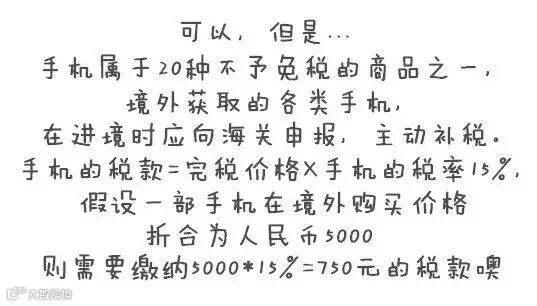 可以，但是…
手机属于20种不予免税的商品之一，
境外获取的各类手机，
在进境时应向海关申报，主动补税。
手机的税款=完税价格X手机的税率15%，
假设一部手机在境外购买价格
折合为人民币5000
则需要缴纳5000*15%=750元的税款噢
大数跨境